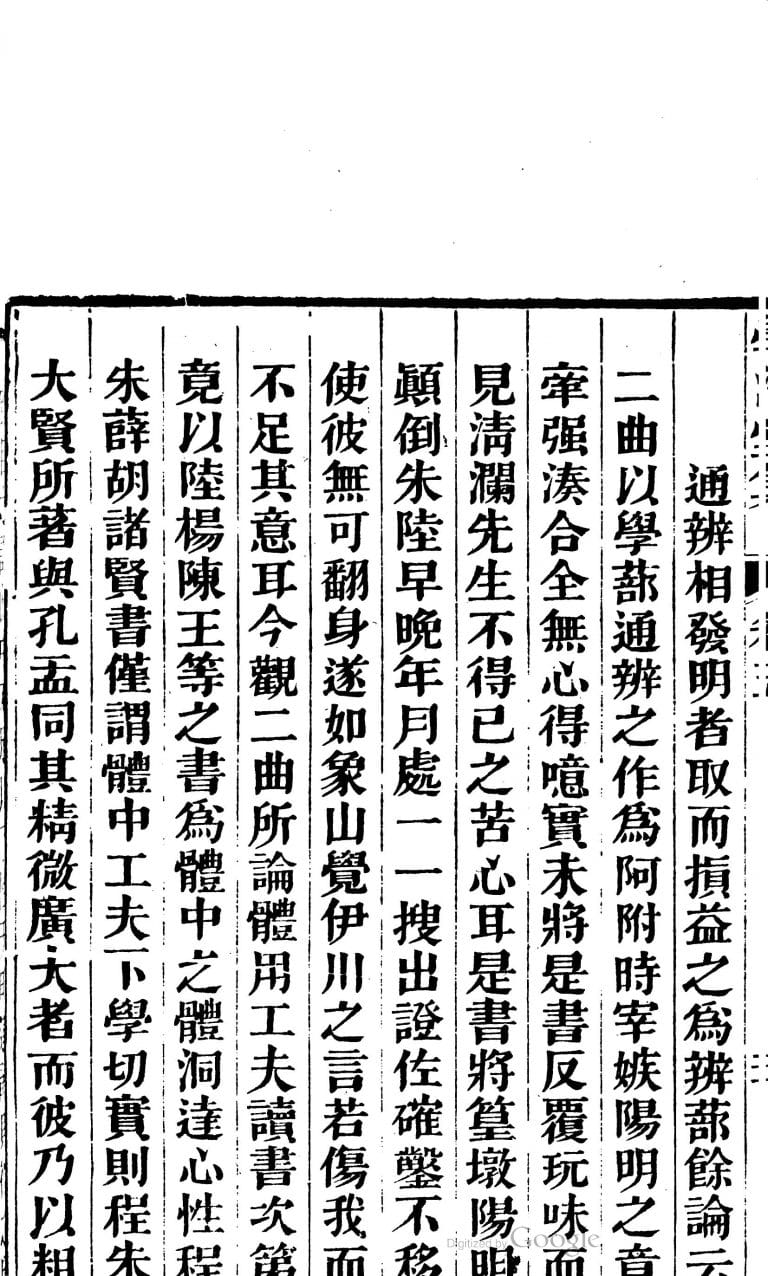 通辨相發明者取而損益之爲辨蔀餘論云
二曲以學蔀通辨之作爲阿附時宰嫉陽明之意
牽强湊合全無心得噫實未將是書反覆玩味而
見淸瀾先生不得已之苦心耳是書將篁墩陽明
顚倒朱陸早晚年月處一一搜出證佐確鑿不移
使彼無可翻身遂如象山覺伊川之言若傷我而
不足其意耳今觀二曲所論體用工夫讀書次第
竟以陸楊陳王等之書爲體中之體洞達心性程
朱薛胡諸賢書僅謂體中工夫下學切實則程朱
大賢所著與孔孟同其精微廣大者而彼乃以粗
Digitized by Google